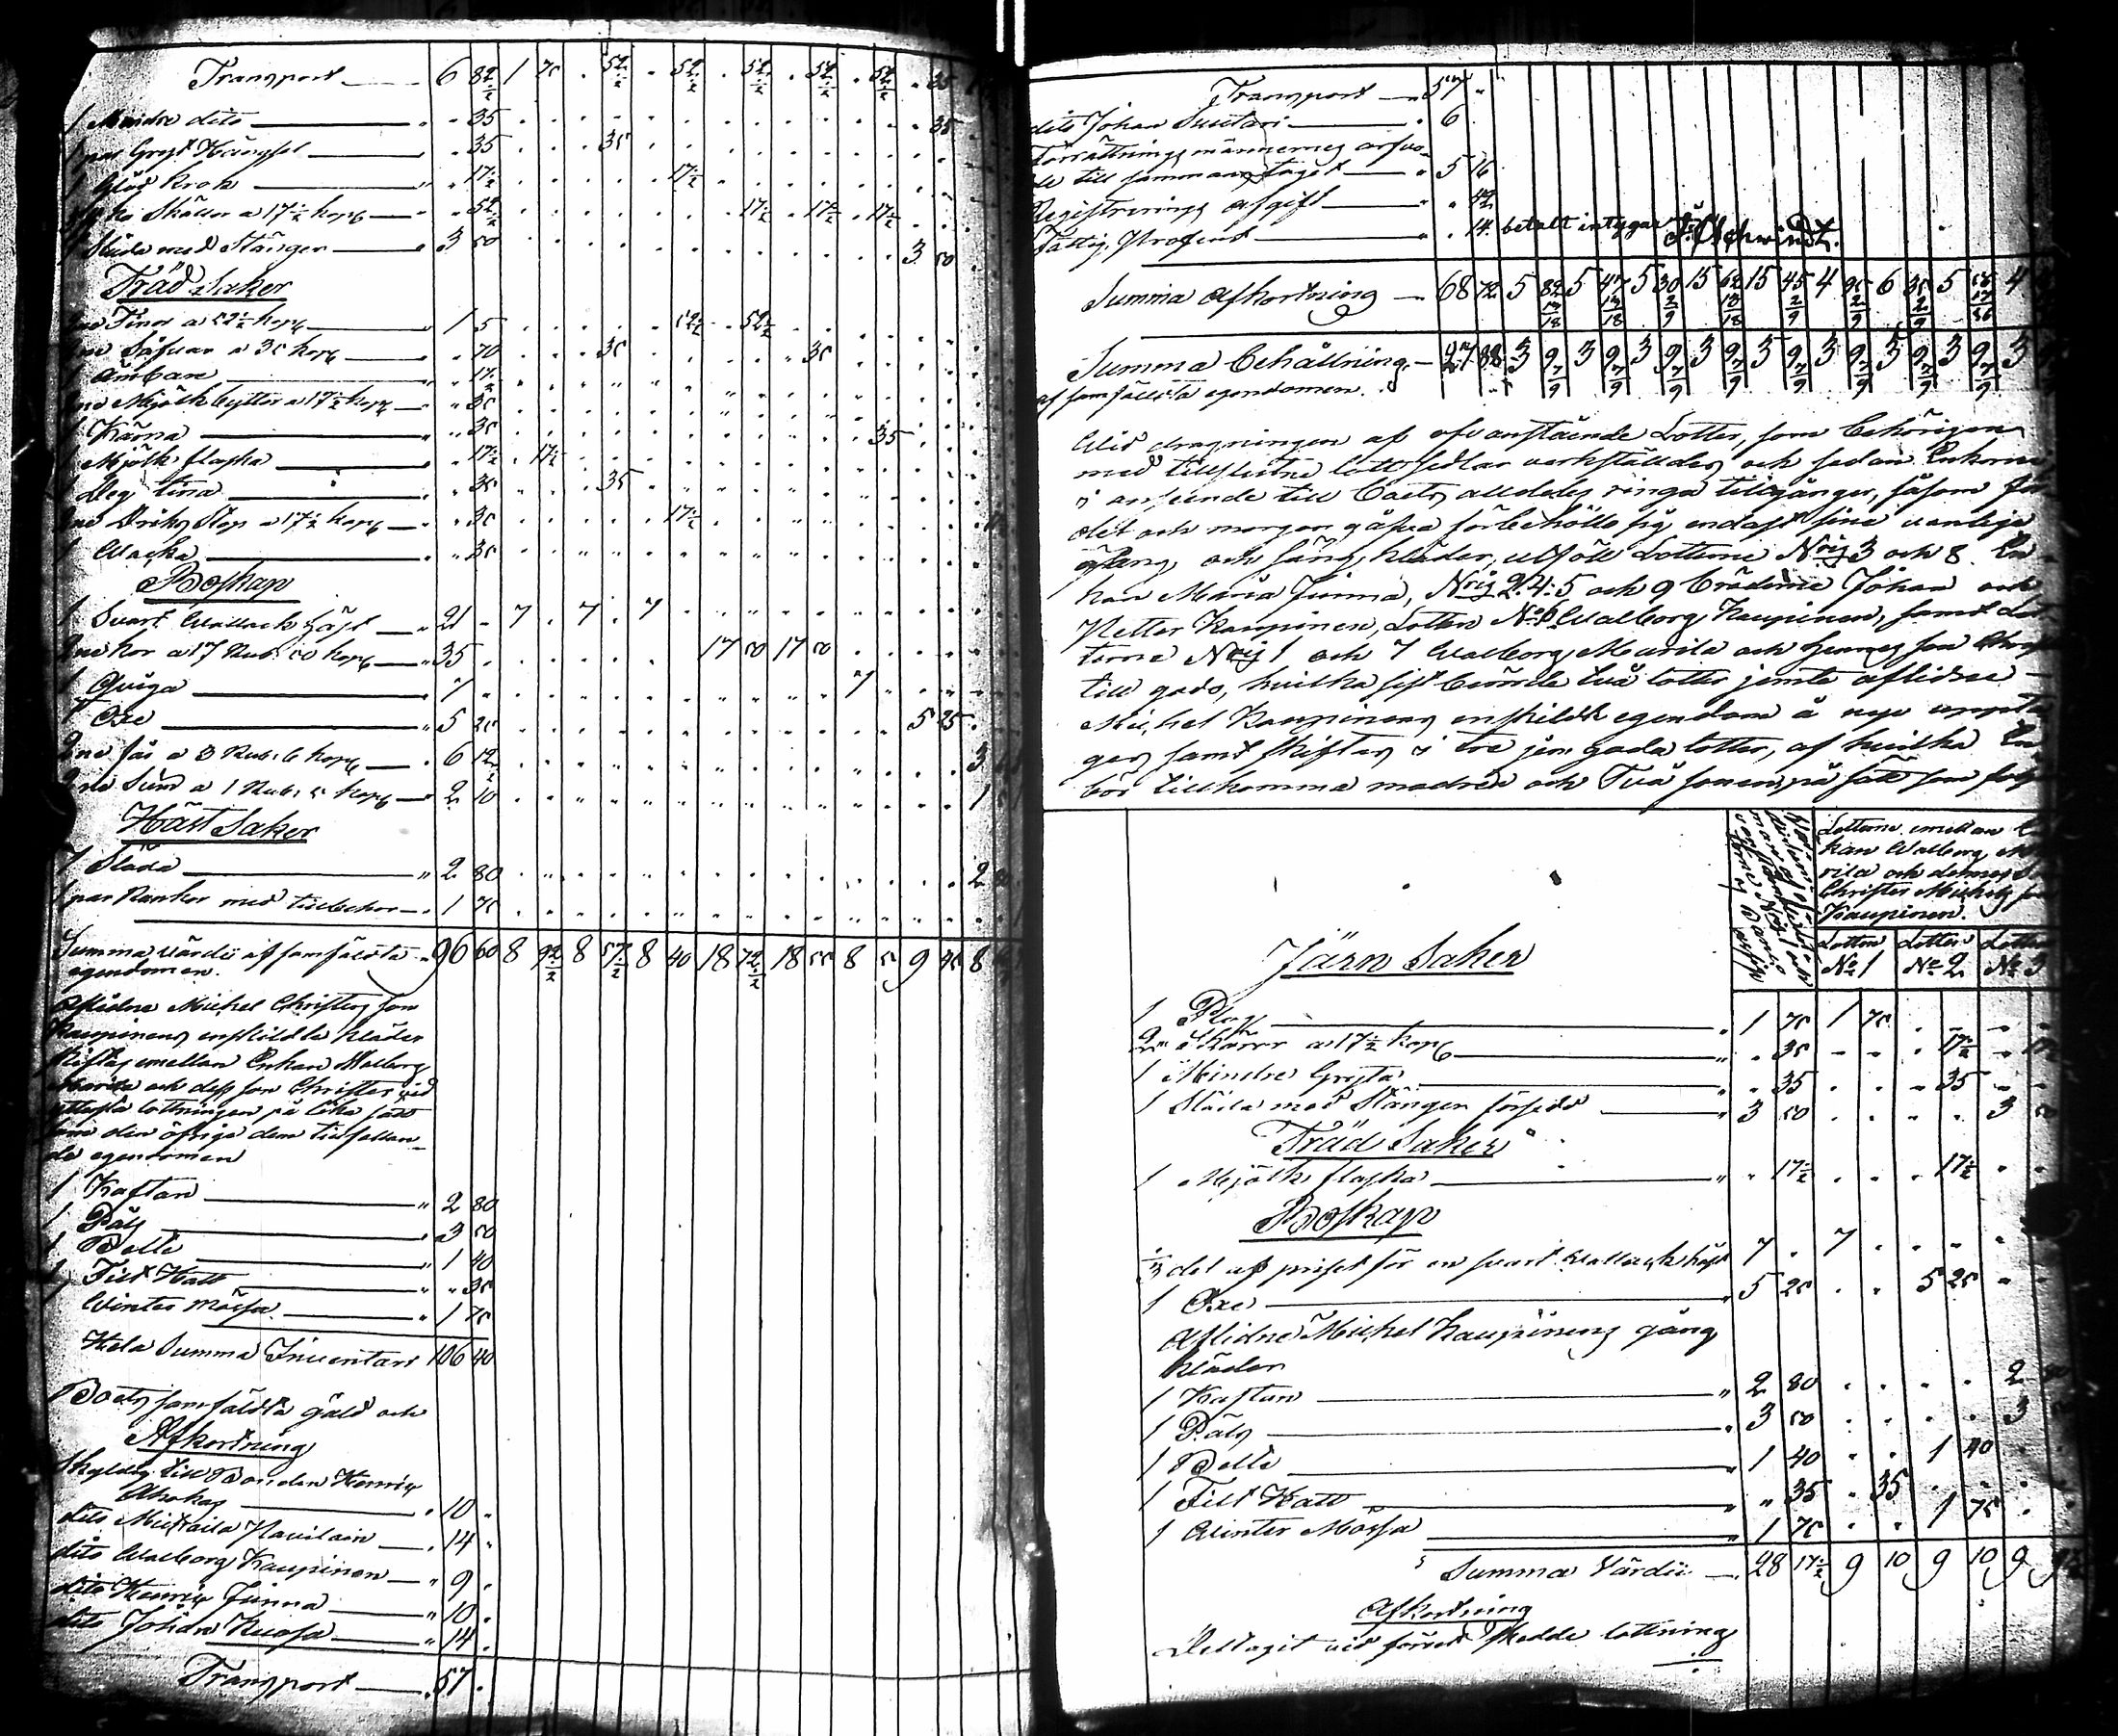 Transport 6 82½ 1 75 . 52½ . 52½ . 52½ . 52½ . 52½ . 35
1 Mindre dito . 35 35
1 par Gryt Hängsel . 35 35
1 Glöd krok . 17½ 17½
3ne ko Skällor a 17½ kop . 52½ 17½ 17½ 17½
1 Släda med Stänger 3 50 3 50
Träd Saker
2ne Tinor a 52½ kop 1 5 52½ 52½
2ne Såfvar a 35 kop . 70 35 35
1 Ämbare . 17½
2ne Mjölk byttor a 17½ kop . 35
1 Kärna . 35 35
1 Mjölk flaska . 17½ 17½
1 Deg tina . 35 35
2ne Driks Stop a 17½ kop . 35 17½
1 Wacka . 35
Boskap
1 Svart Wallack häst 21 - 7 . 7 . 7
2ne kor a 17 Rub. 50 kop 35 17 50 17 50
1 Qviga 7 7
1 Oxe 5 25 5 25
2ne får a 3 Rub. 6 kop 6 12 3
2ne Lund a 1 Rub. 5 kop 2 10 1
Häst Saker
1 Släda 2 80 2
1 par Rankor med tillbehör 1 75
Summa värde af samfäldta 96 60 8 92½ 8 57½ 8 40 18 72½ 18 55 8 5 9 45 8
egendomen
Aflidne Michel Christers son
Kaupinens enskildta kläder
skiftas emellan Enkan Walborg
Murila och dess son Christer vid
yttersta lottningen på lika sätt
som den öfriga dem tillfallan-
de egendomen
1 Kaftan 2 80
1 Päls 3 50
1 Bälte 1 40
1 Filt Hatt . 35
1 Winter mössa 1 75
Hela Summa Inventari 106 40
Boets samfäldta gäld och
Afkortning
Skyldig till Bonden Henrix
Ahokas 10
dito Michaila Pavilain 14
dito Walborg Kaupinen 9
dito Henrix Jinna 10
dito Johan Kuosa 14
Transport 57
Transport 57
dito Johan Suutari 6
Förrättnings männernes arfvo-
de till samman taget 5 16
Registrerings afgift . 42
Fattig Procent . 14 betalt intygar J. Schwindt.
Summa afkortning 68 72 5 82 13/18 5 47 13/18 5 30 2/9 15 62 13/18 15 45 2/9 4 95 2/9 6 35 2/9 5 4
Summa behållning 27 88 3 9 7/9 3 9 7/9 3 9 7/9 3 9 7/9 3 9 7/9 3 9 7/9 3 9 7/9 3 9 7/9 3
af samfäldta egendomen.
Wid dragningen af ofvanstående Lotter, som behörigen
med tillslutne lottsedlar verkställdes och sedan Enkorna
i anseende till boets alldeles ringa tillgångar, såsom för
del och morgon gåfva förbehöllo sig endast sine vanliga
gång och säng kläder, utföll Lotterne Nris 3 och 8 En-
kan Maria Jinna, Nris 2. 4. 5 och 9 bröderne Johan och
Petter Kaupinen, Lotten No 6 Walborg Kaupinen, samt Lot
terne Nris 1 och 7 Walborg Murila och hennes son Christer
till godo, hvilka sist berörde två lotter jemte aflidne
Michel Kaupinens enskildt egendom å nyo uppta
ges samt skiftas i tre jemgoda lotter, af hvilka En
bör tillkomma modren och Två sonen, på sätt som följer
Lotterne emellan En
kan Walborg Mu
rila och dennes Son
Christer Michels son
Kaupinen.
Lotten No 1 Lotten No 2 Lotten No 3
Järn Saker
1 Plog 1 75 1 75
2ne Skäror a 17½ kop . 35 17½
1 Mindre Gryta . 35 35
1 Släda med Stänger försedd 3 50 3 50
Träd Saker
1 Mjölk flaska . 17½ 17½
Boskap
⅓ del af priset för en svart Wallack häst 7 . 7
1 Oxe 5 25 5 25
Aflidne Michel Kaupinens gång
kläder
1 Kaftan 2 80 2
1 Päls 3 50 3
1 Bälte 1 40 1 40
1 Filt Hatt . 35 35
1 Winter Mössa 1 75 1 75
Summa Värde 28 17½ 9 10 9 10 9
Afkortning
Deltagit vid förut skedde lottning